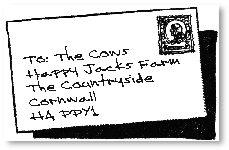 To: The Cows
Happy Jacks Farm
The Countryside
Cornwall
HA PPY1